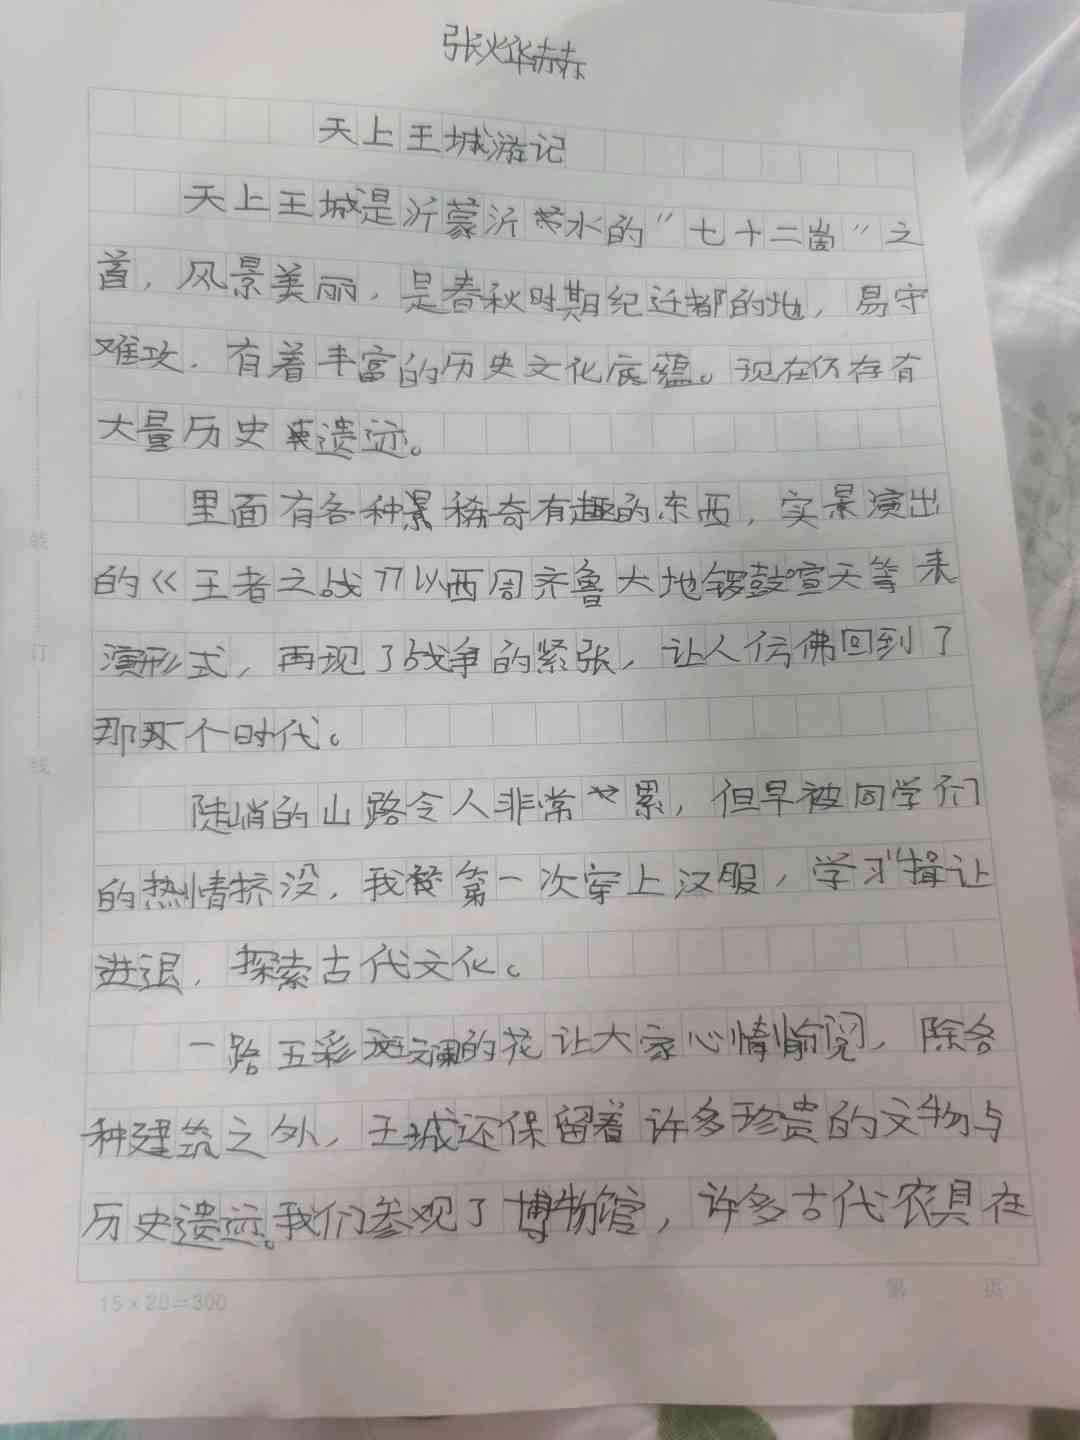 张烨赫
天上王城游记
天上王城是沂蒙沂水的"七十二崮"之
首，风景美丽，是春秋时期纪迁都的地，易守
难攻，有着丰富的历史文化底蕴。现在仍存有
大量历史遗迹。
里面有各种稀奇有趣的东西，实景演出
的《王者之战》以西周齐鲁大地锣鼓喧天等表
演形式，再现了战争的紧张，让人仿佛回到了
那个时代。
陡峭的山路令人非常累，但早被同学们
的热情挤没，我第一次穿上汉服，学习"揖让
进退，探索古代文化。
一路五彩斑斓的花让大家心情愉阅，除各
种建筑之外，王城还保留着许多珍贵的文物与
历史遗迹。我们参观了博物馆，许多古代农具在
15×20=300
第 页
装
订
线